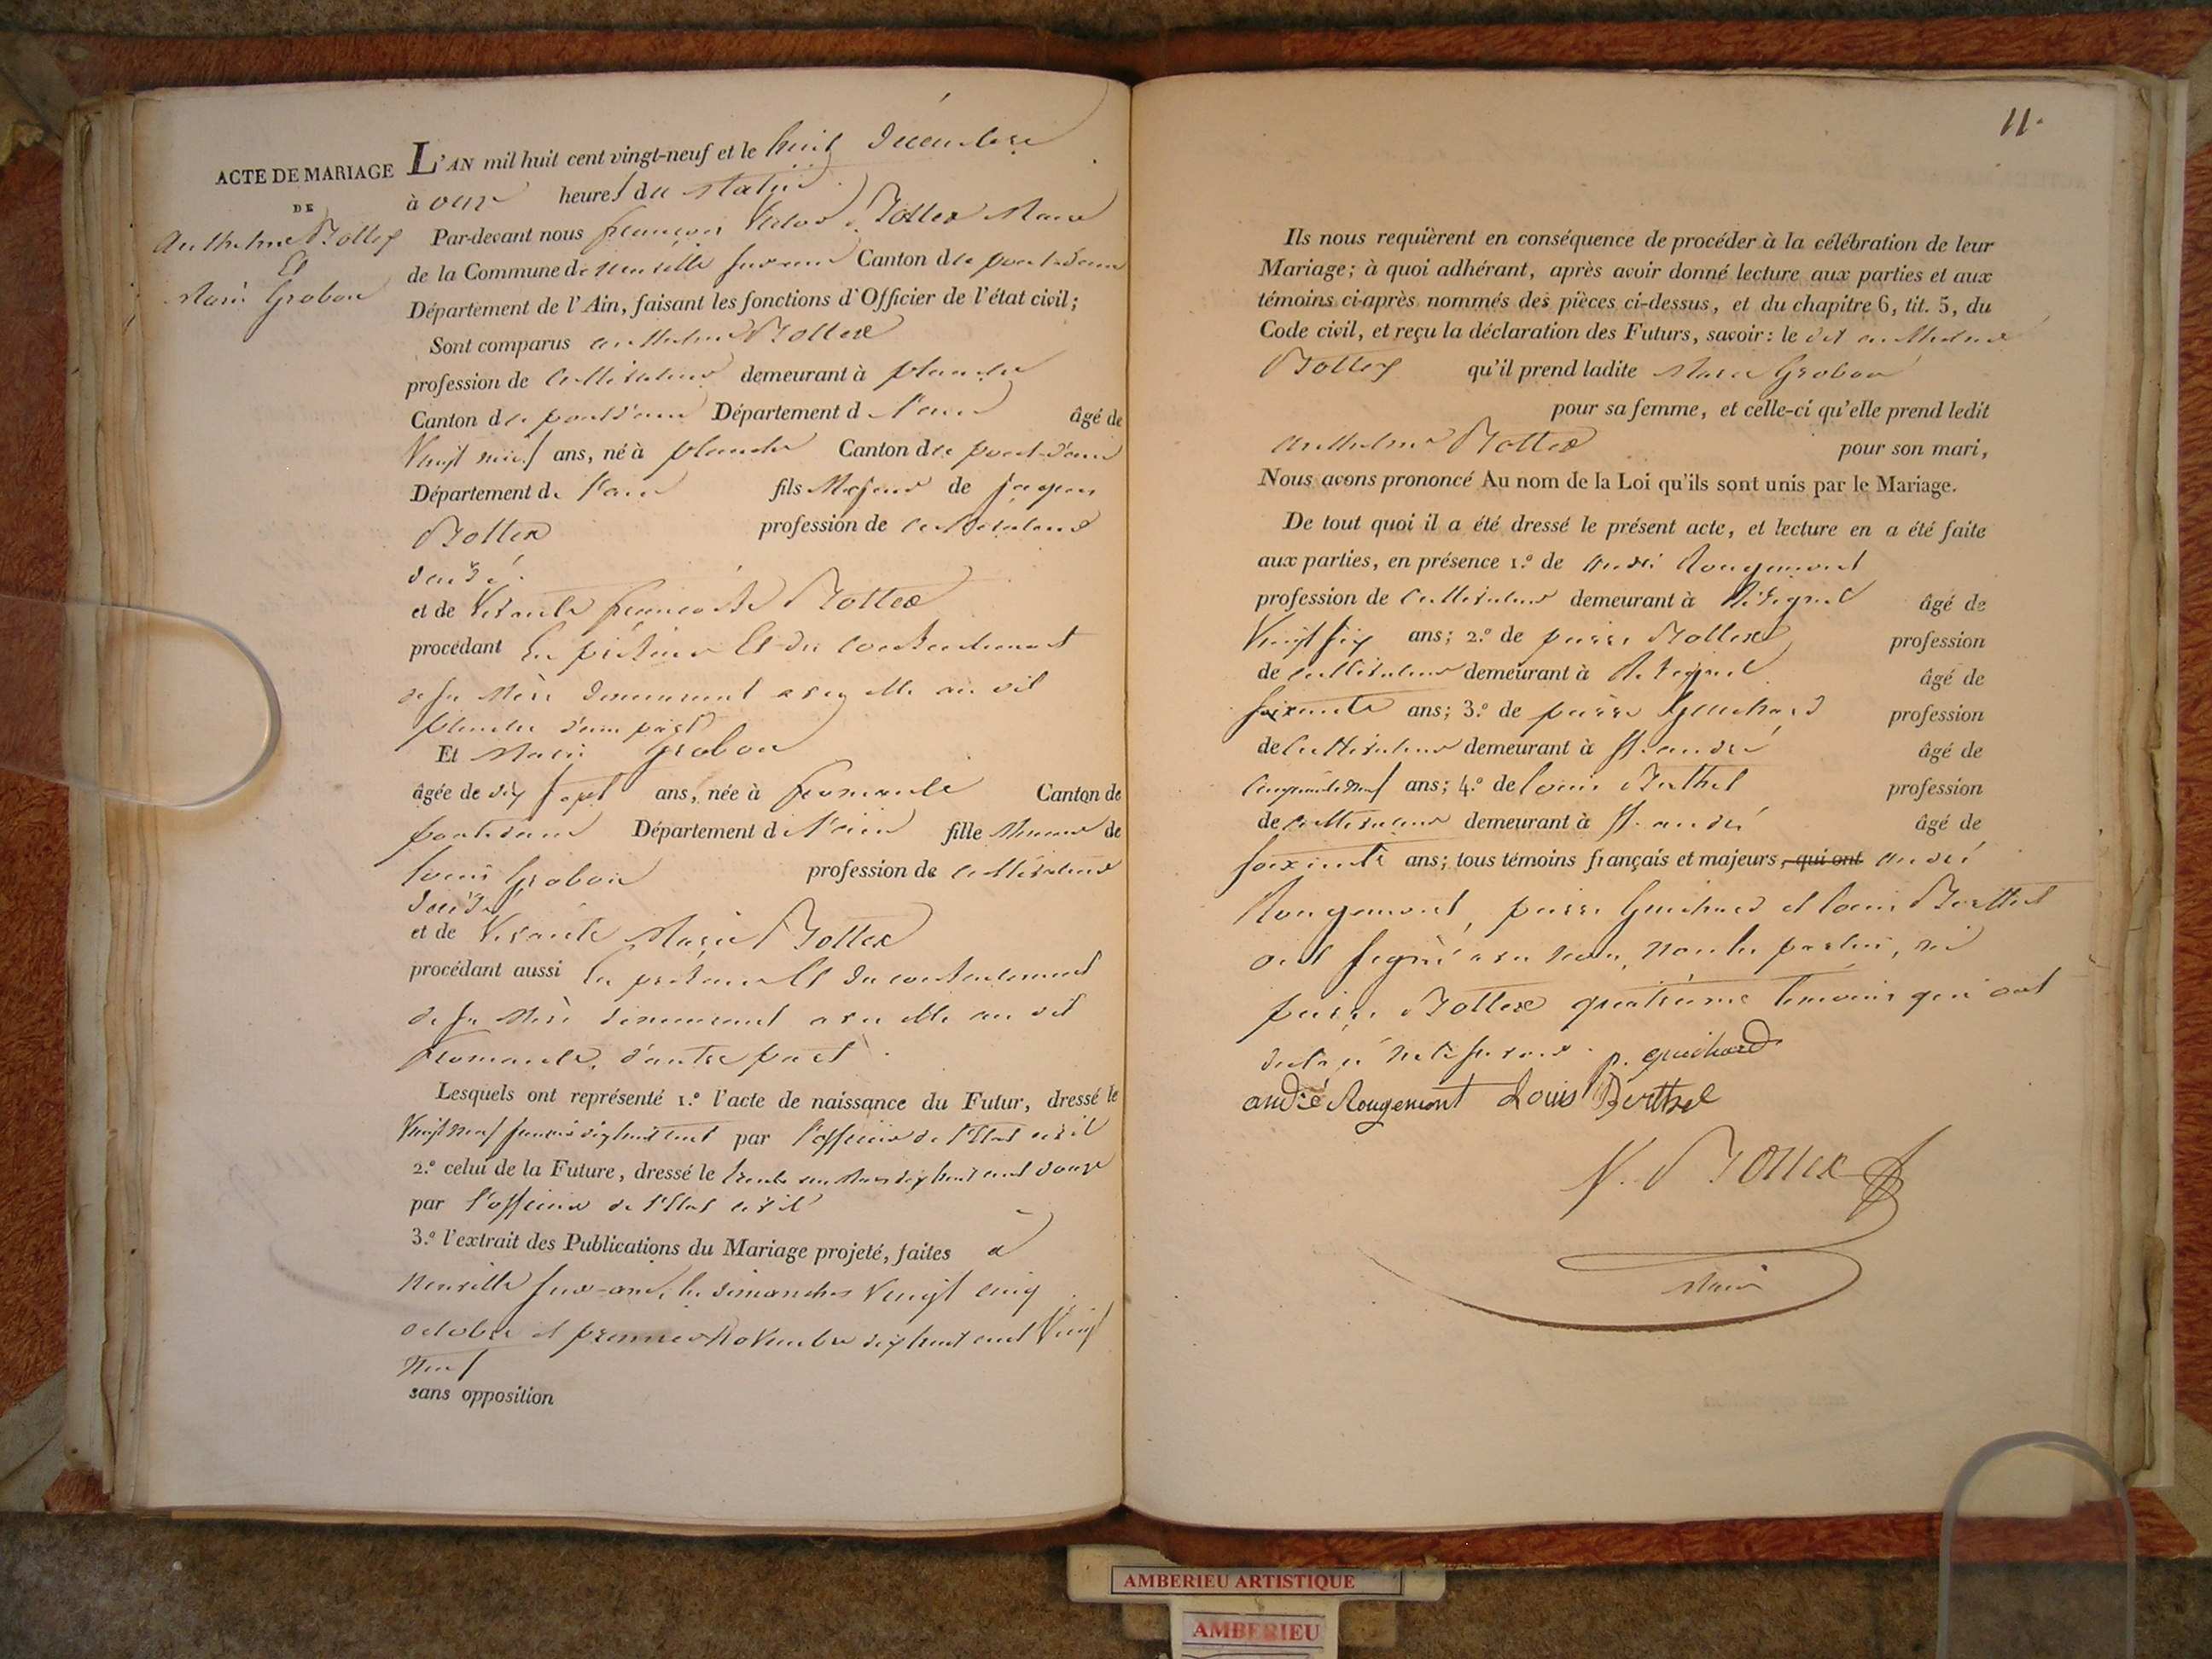 ACTE DE MARIAGE
DE
Anthelme Bottex
Et
Marie Grobon
L'AN mil huit cent vingt-neuf et le huit Décembre
à onze heures du Matin
Par-devant nous françois Victor Bottex Maire
de la Commune de neuville sur ain Canton de pont-d'ain
Département de l'Ain, faisant les fonctions d'Officier de l'état civil;
Sont comparus anthelme Bottex
profession de Cultivateur demeurant à planche
Canton de pont d'ain Département d l'ain âgé de
Vingt neuf ans, né à planche Canton de pont-d'ain
Département de l'ain fils Majeur de jacques
Bottex profession de Cultivateur
décédé
et de Vivante françoise Bottex
procédant En présence Et du Consentement
de sa Mère demeurant avec elle au dit
planche d'une part
Et Marie Grobon
âgée de dix sept ans, née à fromente Canton de
pont d'ain Département d l'ain fille Mineure de
Louis Grobon profession de Cultivateur
décédé
et de Vivante Marie Bottex
procédant aussi En présence Et du consentement
de sa Mère demeurant avec elle au dit
fromente, d'autre part
Lesquels ont représenté 1.º l'acte de naissance du Futur, dressé le
Vingt neuf dix huit cent par l'officier de l'Etat civil
2.º celui de la Future, dressé le trente un Mars dix huit cent douze
par l'officier de l'Etat civil
3.º l'extrait des Publications du Mariage projeté, faites à
Neuville sur-ain, les dimanches Vingt cinq
octobre et premier Novembre dix huit cent Vingt
Neuf
sans opposition
11.
Ils nous requièrent en conséquence de procéder à la célébration de leur
Mariage; à quoi adhérant, après avoir donné lecture aux parties et aux
témoins ci-après nommés des pièces ci-dessus, et du chapitre 6, tit. 5, du
Code civil, et reçu la déclaration des Futurs, savoir: le dit anthelme
Bottex qu'il prend ladite Marie Grobon
pour sa femme, et celle-ci qu'elle prend ledit
anthelme Bottex pour son mari,
Nous avons prononcé Au nom de la Loi qu'ils sont unis par le Mariage.
De tout quoi il a été dressé le présent acte, et lecture en a été faite
aux parties, en présence 1.º de andré Rougemont
profession de Cultivateur demeurant à âgé de
Vingt six ans; 2.º de pierre Bottex profession
de Cultivateur demeurant à âgé de
soixante ans; 3.º de pierre Guichard profession
de Cultivateur demeurant à St. andré âgé de
Cinquante neuf ans; 4.º de Louis Berthet profession
de Cultivateur demeurant à St. andré âgé de
soixante ans; tous témoins français et majeurs, qui ont andré
Rougemont, pierre Guichard et Louis Berthet
ont signé avec nous, non les parties, ni
pierre Bottex quatrième témoin qui ont
déclaré ne le savoir. p. guichard
andré Rougemont Louis Berthet
V. Bottex
Maire
AMBERIEU ARTISTIQUE
AMBERIEU